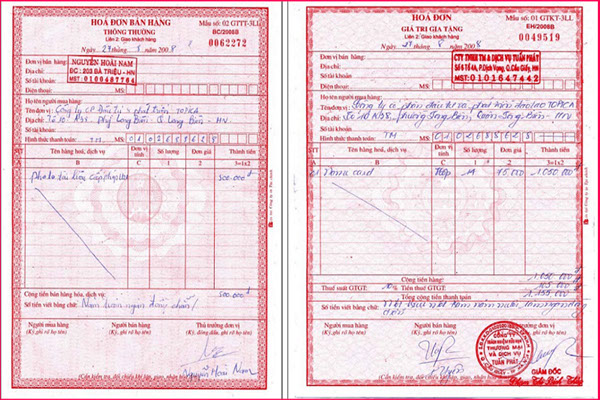 HOÁ ĐƠN BÁN HÀNG
THÔNG THƯỜNG
Liên 2: Giao khách hàng
Ngày 27 tháng 8 năm 2008
Mẫu số: 02 GTTT-3LL
BC/2008B
0062272
Đơn vị bán hàng:
NGUYỄN HOÀI NAM
Địa chỉ:
ĐC: 203 BÀ TRIỆU - HN
Số tài khoản:
MST: 0100487764
Điện thoại:
MS:
Họ tên người mua hàng:
Tên đơn vị: Công ty CP Đầu tư & phát triển TOPICA
Địa chỉ: Long Biên Q. Long Biên - HN
Số tài khoản:
Hình thức thanh toán: TM
MS:
STT
Tên hàng hoá, dịch vụ
Đơn vị tính
Số lượng
Đơn giá
Thành tiền
A
B
C
1
2
3=1x2
500.000đ
Cộng tiền bán hàng hóa, dịch vụ:
500.000đ
Số tiền viết bằng chữ: Năm trăm ngàn đồng chẵn/
Người mua hàng
Người bán hàng
Thủ trưởng đơn vị
(Ký, ghi rõ họ tên)
(Ký, ghi rõ họ tên)
(Ký, đóng dấu, ghi rõ họ tên)
Nguyễn Hoài Nam
(Cần kiểm tra, đối chiếu khi lập, giao, nhận hóa đơn)
HOÁ ĐƠN
GIÁ TRỊ GIA TĂNG
Liên 2: Giao khách hàng
Ngày 27 tháng 8 năm 2008
Mẫu số: 01 GTKT-3LL
EH/2008B
0049519
Đơn vị bán hàng:
CTY TNHH TM & DỊCH VỤ TUẤN PHÁT
Địa chỉ:
Số 6 Tổ 4A, P.Dịch Vọng, Q.Cầu Giấy, HN
Số tài khoản:
MST: 0101647442
Điện thoại:
MS:
Họ tên người mua hàng:
Tên đơn vị: Công ty cổ phần đầu tư và phát triển TOPICA
Địa chỉ: phường Long Biên, Quận Long Biên - HN
Số tài khoản:
Hình thức thanh toán: TM
MS:
STT
Tên hàng hoá, dịch vụ
Đơn vị tính
Số lượng
Đơn giá
Thành tiền
A
B
C
1
2
3=1x2
card
Hộp
14
75.000
1.050.000
Cộng tiền hàng:
1.050.000
Thuế suất GTGT: 10% Tiền thuế GTGT:
105.000
Tổng cộng tiền thanh toán
1.155.000
Số tiền viết bằng chữ: Một triệu một trăm năm mươi lăm
Người mua hàng
Người bán hàng
(Ký, ghi rõ họ tên)
(Ký, ghi rõ họ tên)
CÔNG TY
TRÁCH NHIỆM HỮU HẠN
THƯƠNG MẠI
VÀ DỊCH VỤ
TUẤN PHÁT
GIÁM ĐỐC
(Cần kiểm tra, đối chiếu khi lập, giao, nhận hóa đơn)